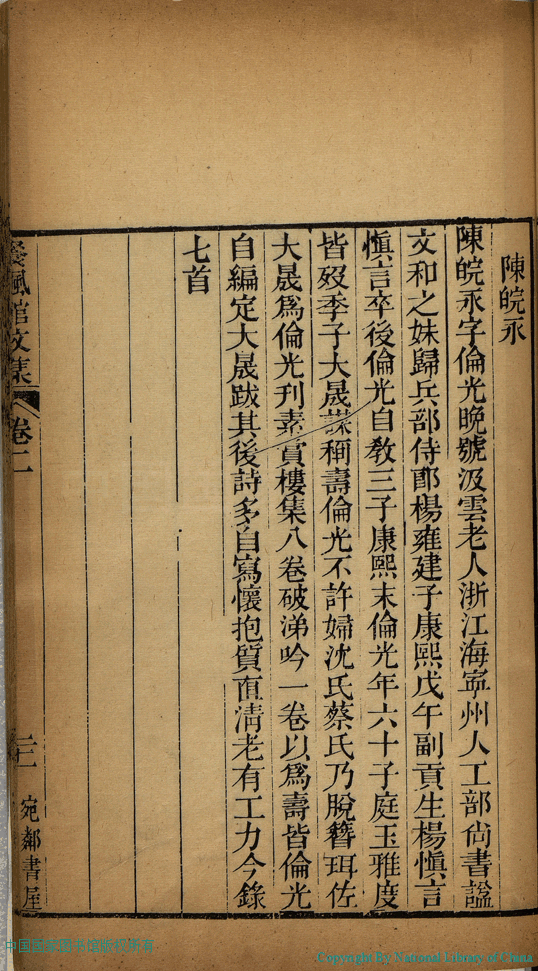 陳皖永
陳皖永字倫光晚號汲雲老人浙江海寧州人工部尚書諡
文和之妹歸兵部侍郎楊雍建子康熙戊午副貢生楊慎言
慎言卒後倫光自教三子康熙末倫光年六十子庭玉雅度
皆歿季子大晟謀稱壽倫光不許婦沈氏蔡氏乃脫簪珥佐
大晟爲倫光刊素賞樓集八卷破涕吟一卷以爲壽皆倫光
自編定大晟跋其後詩多自寫懷抱質直淸老有工力今錄
七首
風館文集 卷二
宛鄰書屋
Copyright By National Library of China